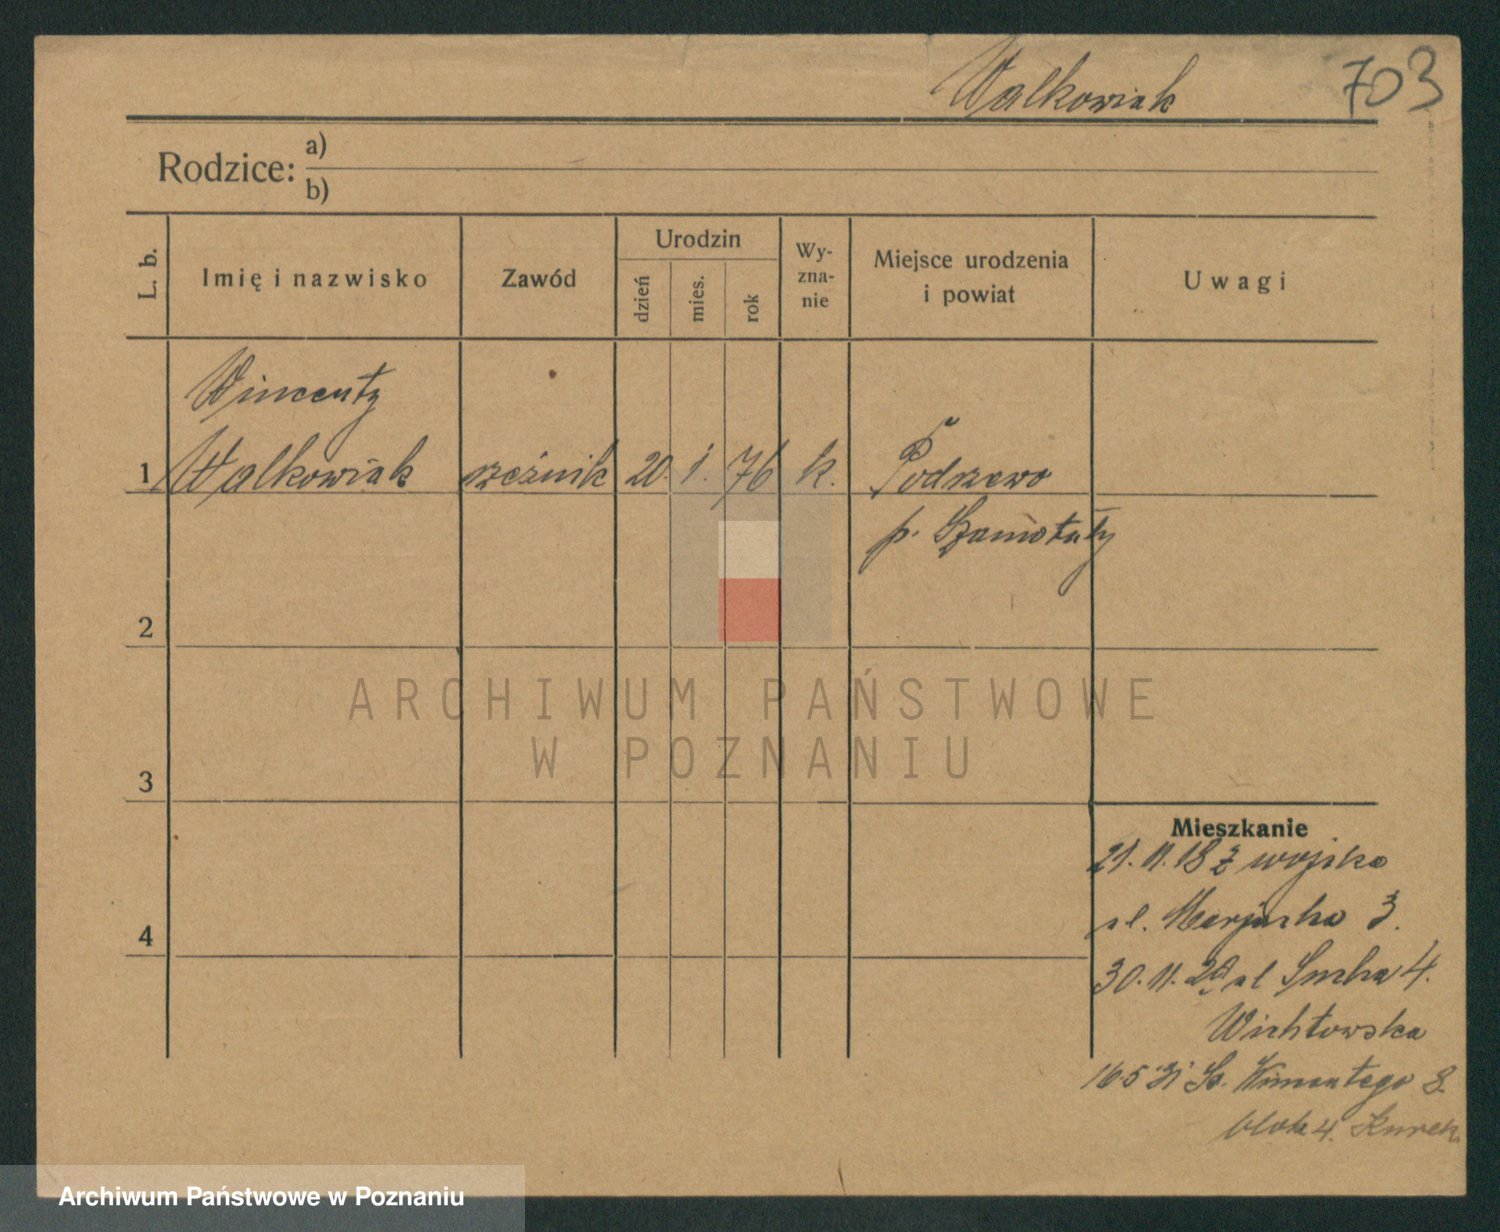 Walkowiak 703
Rodzice: a)
b)
L. b. Imię i nazwisko Zawód Urodzin dzień mies. rok Wy-zna-nie Miejsce urodzenia i powiat Uwagi
Wincenty
1 Walkowiak rzeźnik 20. 1. 76 k. Podrzewo
p. Szamotuły
2
ARCHIWUM PAŃSTWOWE
W POZNANIU
3
Mieszkanie
21. 11. 18 z wojska
ul. 3.
4
30. 11. ul 4.
16 5 31 Św. Wincentego 8.
blok 4.
Archiwum Państwowe w Poznaniu